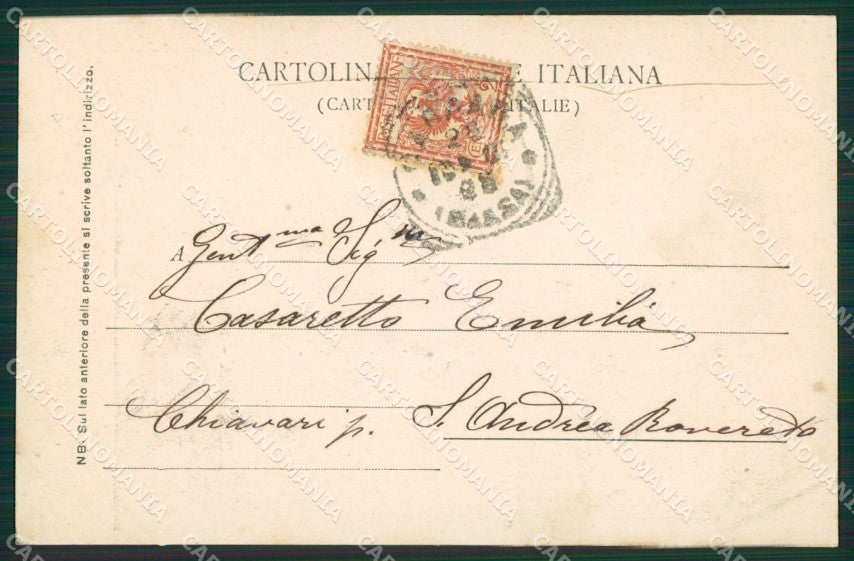 CARTOLIN E ITALIANA
(CART ITALIE)
A Gent.ma Sig.ra
Casaretto Emilia
Chiavari p. S. Andrea Rovereto
NB. Sul lato anteriore della presente si scrive soltanto l'indirizzo.
(MASSA)
CARTOLINOMANIA